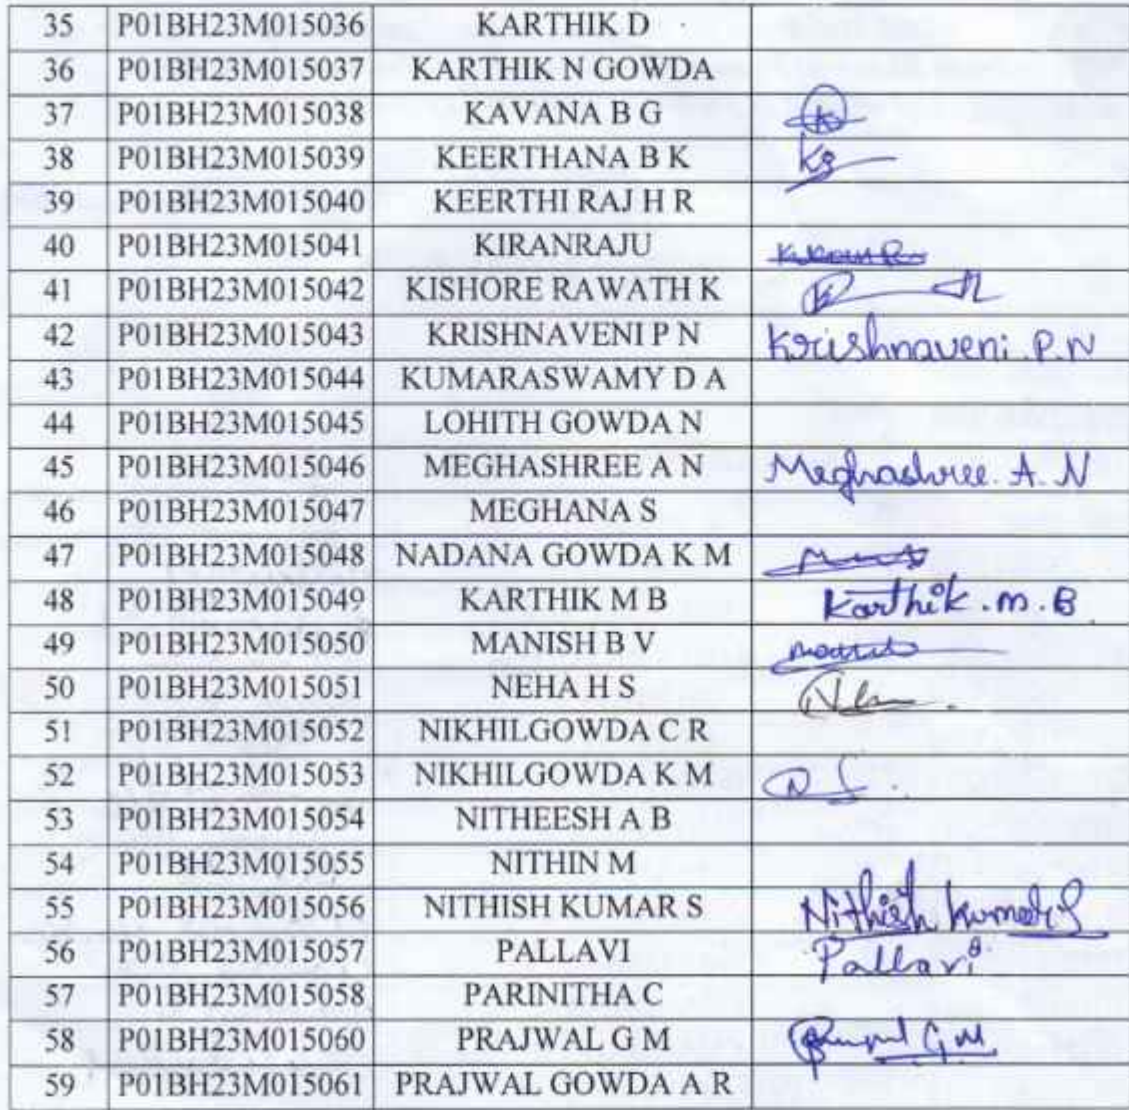 35 P01BH23M015036 KARTHIK D
36 P01BH23M015037 KARTHIK N GOWDA
37 P01BH23M015038 KAVANA B G
38 P01BH23M015039 KEERTHANA B K
39 P01BH23M015040 KEERTHI RAJ H R
40 P01BH23M015041 KIRANRAJU
41 P01BH23M015042 KISHORE RAWATH K
42 P01BH23M015043 KRISHNAVENI P N Krishnaveni. P. N
43 P01BH23M015044 KUMARASWAMY D A
44 P01BH23M015045 LOHITH GOWDA N
45 P01BH23M015046 MEGHASHREE A N Meghashree. A. N
46 P01BH23M015047 MEGHANA S
47 P01BH23M015048 NADANA GOWDA K M
48 P01BH23M015049 KARTHIK M B Karthik. m. B
49 P01BH23M015050 MANISH B V
50 P01BH23M015051 NEHA H S
51 P01BH23M015052 NIKHILGOWDA C R
52 P01BH23M015053 NIKHILGOWDA K M
53 P01BH23M015054 NITHEESH A B
54 P01BH23M015055 NITHIN M
55 P01BH23M015056 NITHISH KUMAR S Nithish Kumar S
56 P01BH23M015057 PALLAVI Pallavi
57 P01BH23M015058 PARINITHA C
58 P01BH23M015060 PRAJWAL G M
59 P01BH23M015061 PRAJWAL GOWDA A R